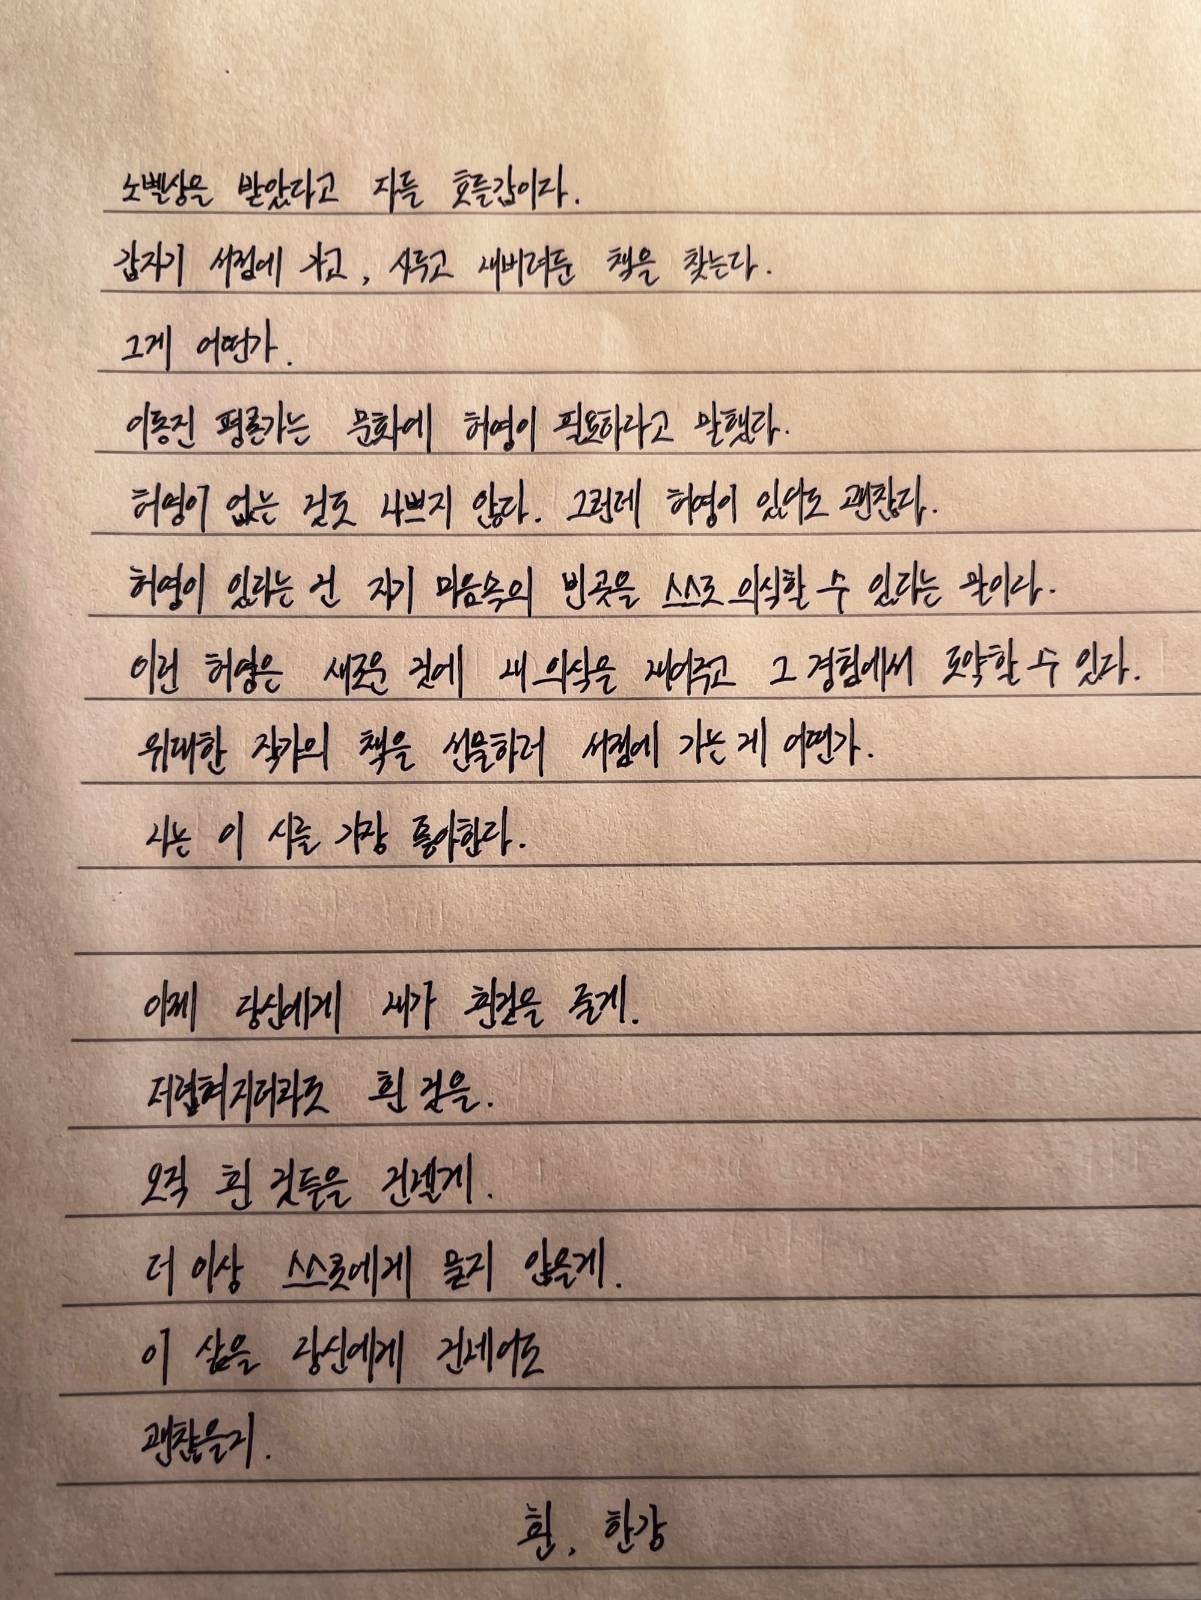 노벨상을 받았다고 다들 호들갑이다.
갑자기 서점에 가고, 사두고 내버려둔 책을 찾는다.
그게 어떤가.
이동진 평론가는 문화에 허영이 필요하다고 말했다.
허영이 없는 것도 나쁘지 않다. 그런데 허영이 있어도 괜찮다.
허영이 있다는 건 자기 마음속의 빈곳을 스스로 의식할 수 있다는 말이다.
이런 허영은 새로운 것에 내 의식을 내어주고 그 경험에서 도약할 수 있다.
위대한 작가의 책을 선물하러 서점에 가는게 어떤가.
나는 이 시를 가장 좋아한다.
이제 당신에게 내가 흰것을 줄게.
더럽혀지더라도 흰 것을.
오직 흰 것들을 건넬게.
더 이상 스스로에게 묻지 않을게.
이 삶을 당신에게 건네어도
괜찮을지.
흰, 한강